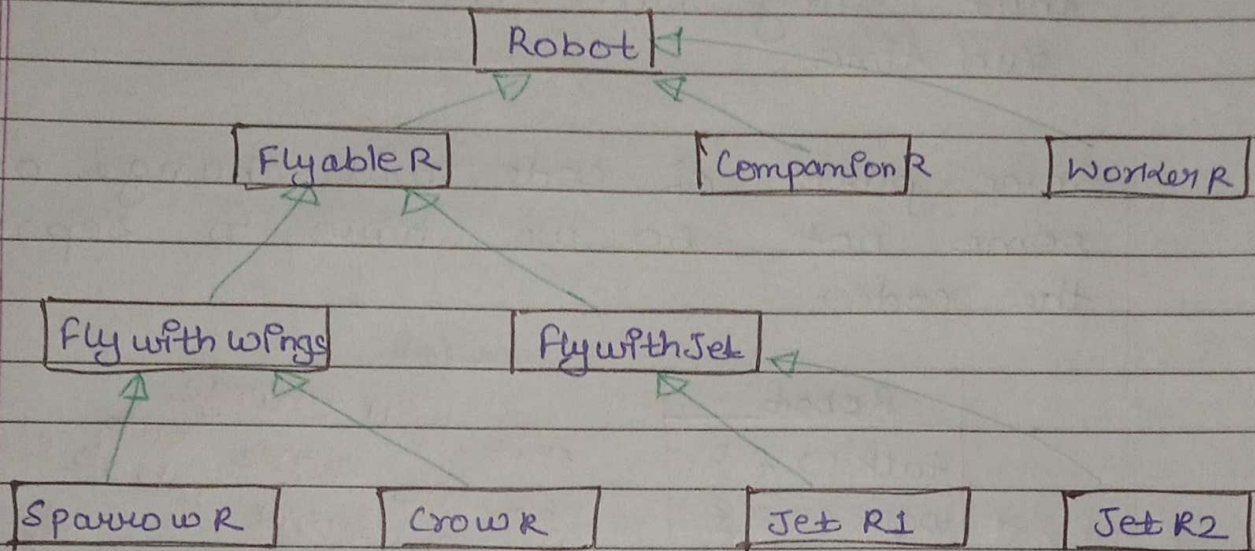 Robot
Flyable R
Companion R
Worker R
Fly with wings
fly with Jet
Sparrow R
Crow R
Jet R1
Jet R2